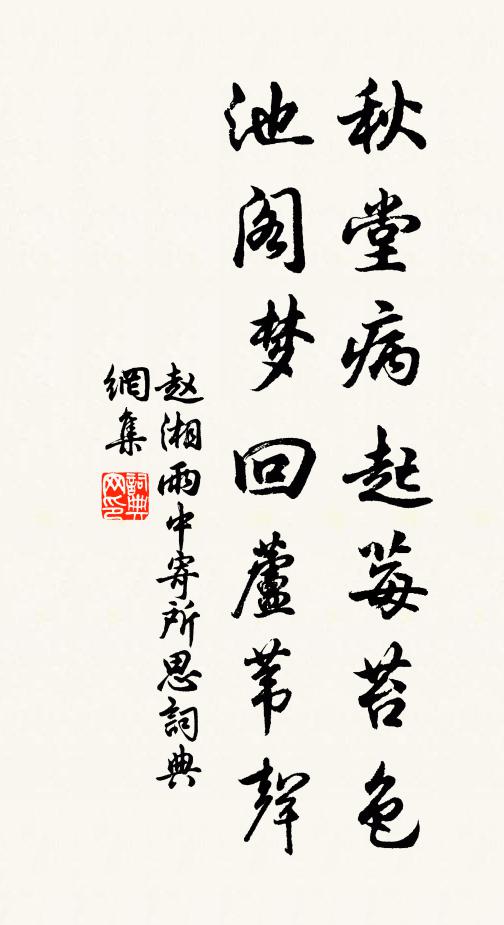 秋堂病起莓苔色
池阁梦回蘆苇聲
赵湘雨中寄所思詞典
網集
詞典网印